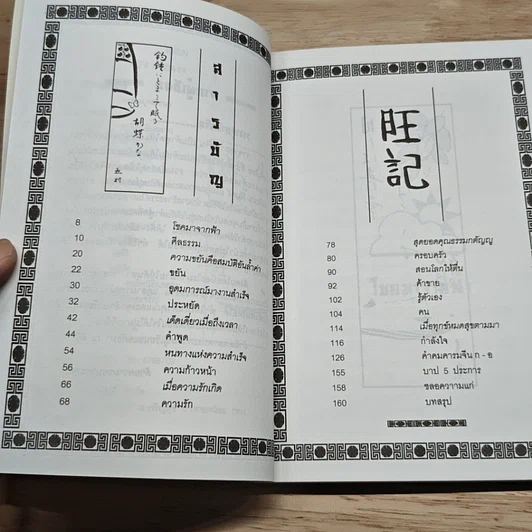 釣鐘にとまりて眠る
胡蝶かな
สารบัญ
8 โชคมาจากฟ้า
10 ศีลธรรม
20 ความขยันคือสมบัติอันล้ำค่า
22 ขยัน
30 อุดมการณ์มางานสำเร็จ
32 ประหยัด
42 เด็ดเดี่ยวเมื่อถึงเวลา
44 คำพูด
54 หนทางแห่งความสำเร็จ
56 ความก้าวหน้า
66 เมื่อความรักเกิด
68 ความรัก
旺記
78 สุดยอดคุณธรรมกตัญญู
80 ครอบครัว
90 สอนโลกให้ตื่น
92 ค้าขาย
102 รู้ตัวเอง
104 คน
114 เมื่อทุกข์หมดสุขตามมา
116 กำลังใจ
126 คำคมคารมจีน ก - อ
155 บาป 5 ประการ
158 ชลอความแก่
160 บทสรุป